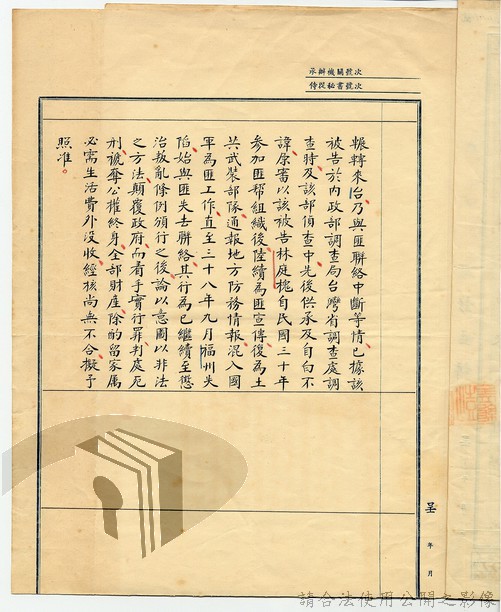 承辦機關號次
侍從秘書號次
輾轉來台乃與匪聯絡中斷等情已據該
被告於內政部調查局台灣省調查處調
查時及該部偵查中先後供承及自白不
諱原審以該被告林庭槐自民國三十年
參加匪幫組織後陸續為匪宣傳復為土
共武裝部隊通報地方防務情報混入國
軍為匪工作直至三十八年九月福州失
陷始與匪失去聯絡其行為已繼續至懲
治叛亂條例頒行之後論以意圖以非法
之方法顛覆政府而着手實行罪判處死
刑褫奪公權終身全部財產除酌留家屬
必需生活費外沒收經核尚無不合擬予
照准。
呈
年
月
請合法使用公開之影像